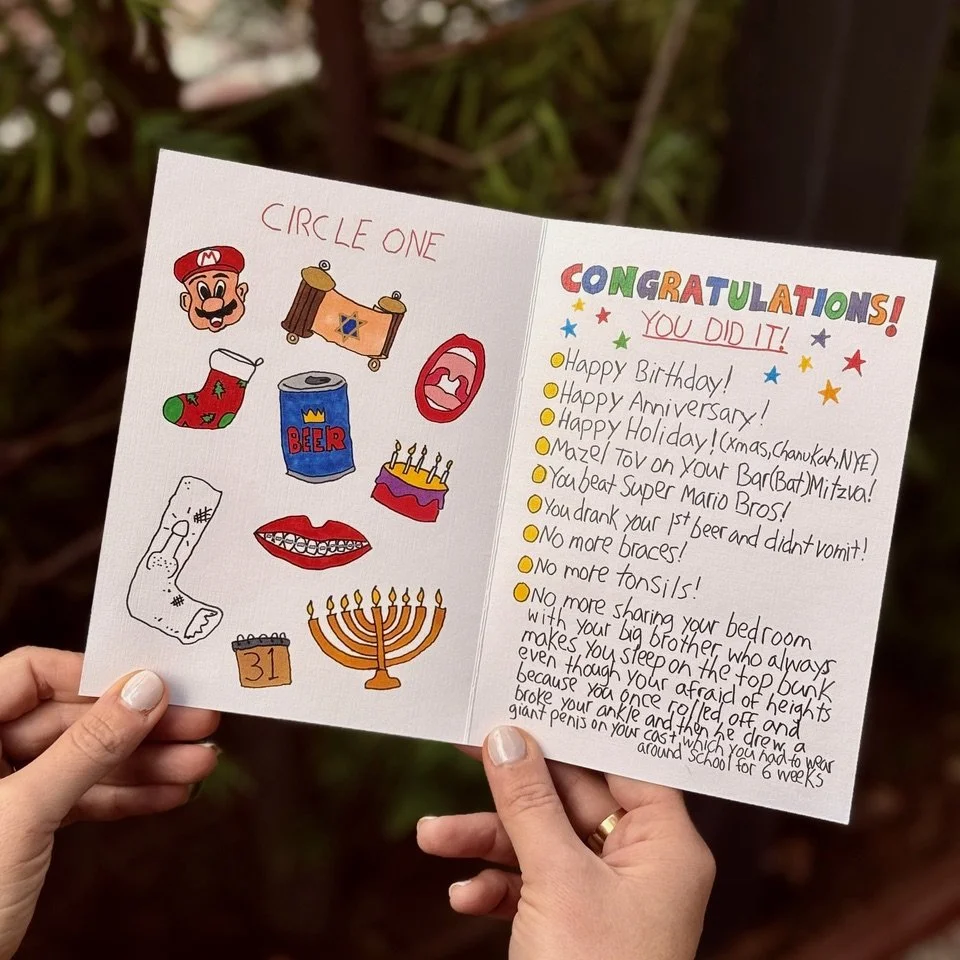 CIRCLE ONE
M
BEER
31
CONGRATULATIONS!
YOU DID IT!
Happy Birthday!
Happy Anniversary!
Happy Holiday! (Xmas, Chanukah, NYE)
Mazel Tov on your Bar(Bat) Mitzva!
You beat Super Mario Bros!
You drank your 1st beer and didnt vomit!
No more braces!
No more tonsils!
No more sharing your bedroom
with your big brother who always
makes you sleep on the top bunk
even though your afraid of heights
because you once rolled off and
broke your ankle and then he drew a
giant penis on your cast which you had to wear
around school for 6 weeks